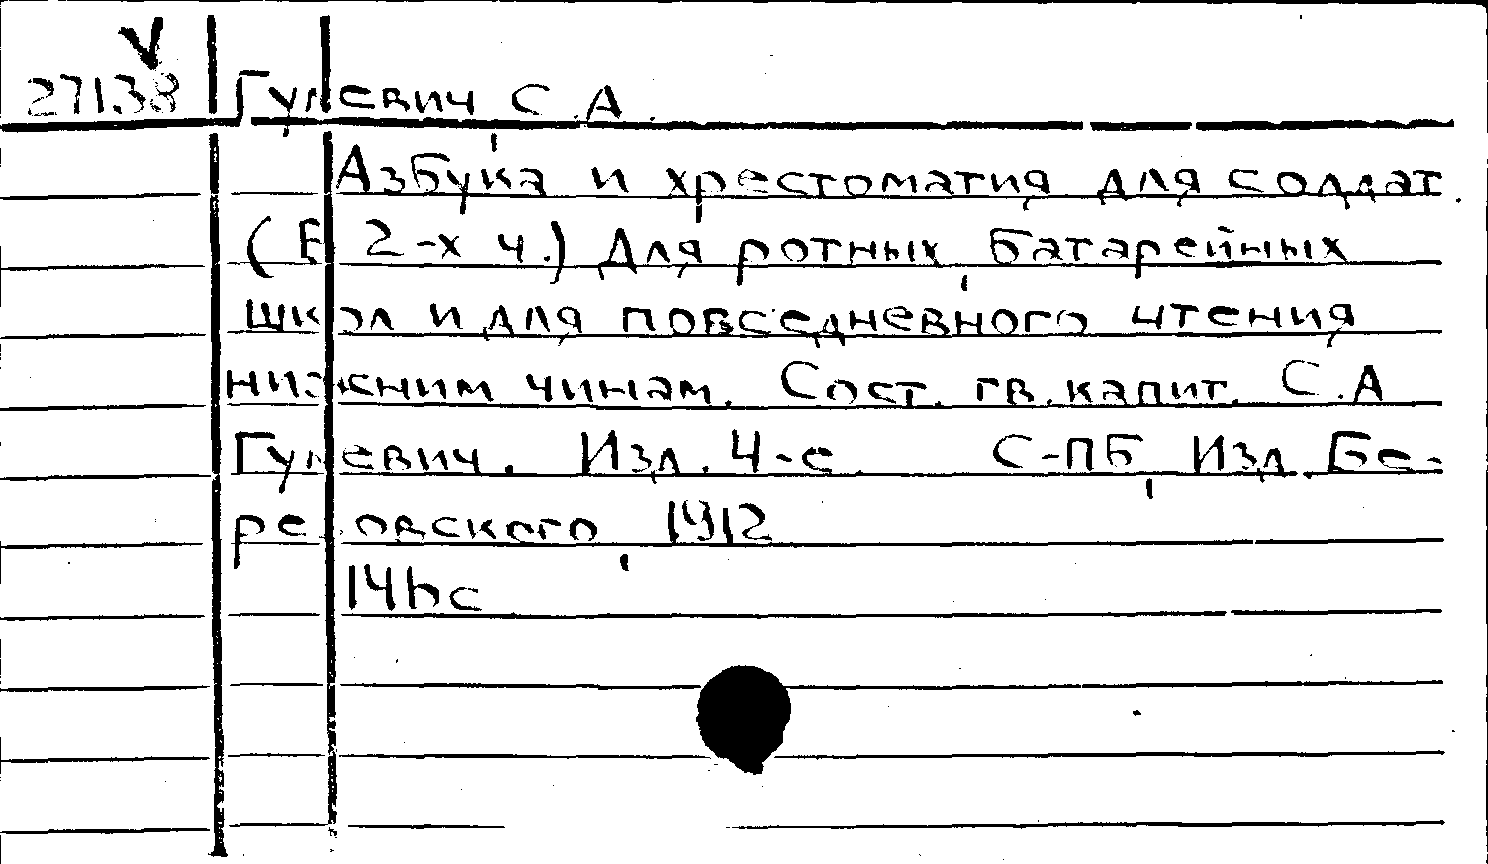 V
27138 Гулевич, С.А.
Азбука и хрестоматия для солдат.
(В 2-х ч.) Для ротных, батарейных
школ и для повседневного чтения
нижним чинам. Сост. гв. капит. С.А
Гулевич. Изд. 4-е. С-ПБ, Изд. Бе-
резовского, 1912
14hc